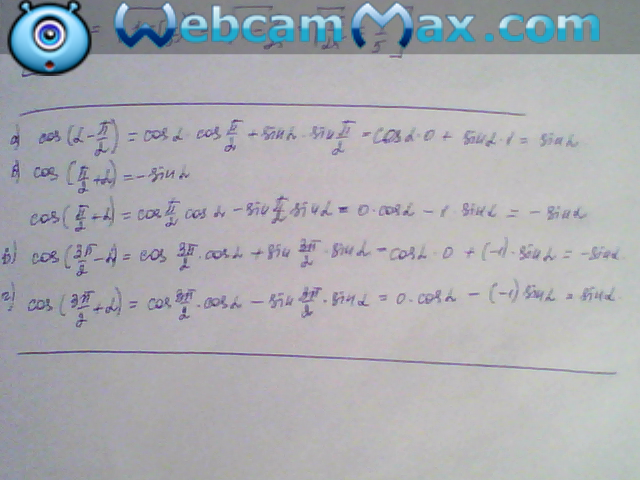 WebcamMax.com
а) cos(α - π/2) = cos α · cos π/2 + sin α · sin π/2 = cos α · 0 + sin α · 1 = sin α
б) cos(π/2 + α) = - sin α
cos(π/2 + α) = cos π/2 cos α - sin π/2 sin α = 0 · cos α - 1 · sin α = - sin α
в) cos(3π/2 - α) = cos 3π/2 · cos α + sin 3π/2 · sin α = cos α · 0 + (-1) · sin α = - sin α
г) cos(3π/2 + α) = cos 3π/2 · cos α - sin 3π/2 · sin α = 0 · cos α - (-1) sin α = sin α